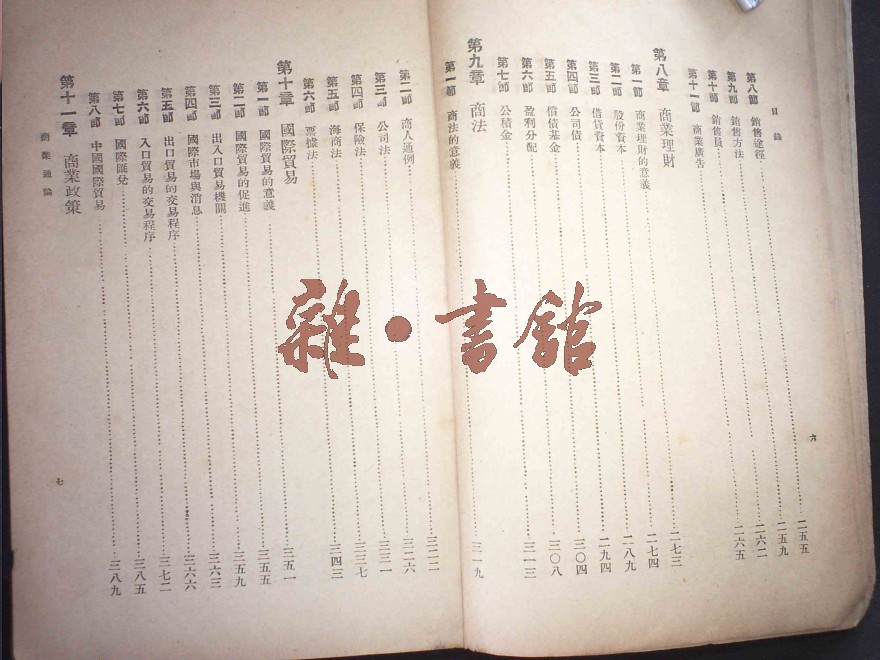 目錄
第八節 銷售途徑……二五五
第九節 銷售方法……二五九
第十節 銷售員……二六二
第十一節 商業廣告……二六五
第八章 商業理財
第一節 商業理財的意義……二七三
第二節 股份資本……二七四
第三節 借貸資本……二八九
第四節 公司債……二九四
第五節 償債基金……三〇四
第六節 盈利分配……三〇八
第七節 公積金……三一三
第九章 商法
第一節 商法的意義……三一九
六
第二節 商人通例……三二二
第三節 公司法……三二六
第四節 保險法……三三一
第五節 海商法……三三七
第六節 票據法……三四三
第十章 國際貿易
第一節 國際貿易的意義……三五一
第二節 國際貿易的促進……三五五
第三節 出入口貿易機關……三五九
第四節 國際市場與消息……三六三
第五節 出口貿易的交易程序……三六六
第六節 入口貿易的交易程序……三七二
第七節 國際匯兌……三八五
第八節 中國國際貿易……三八九
第十一章 商業政策
商業通論
七
雜·書館